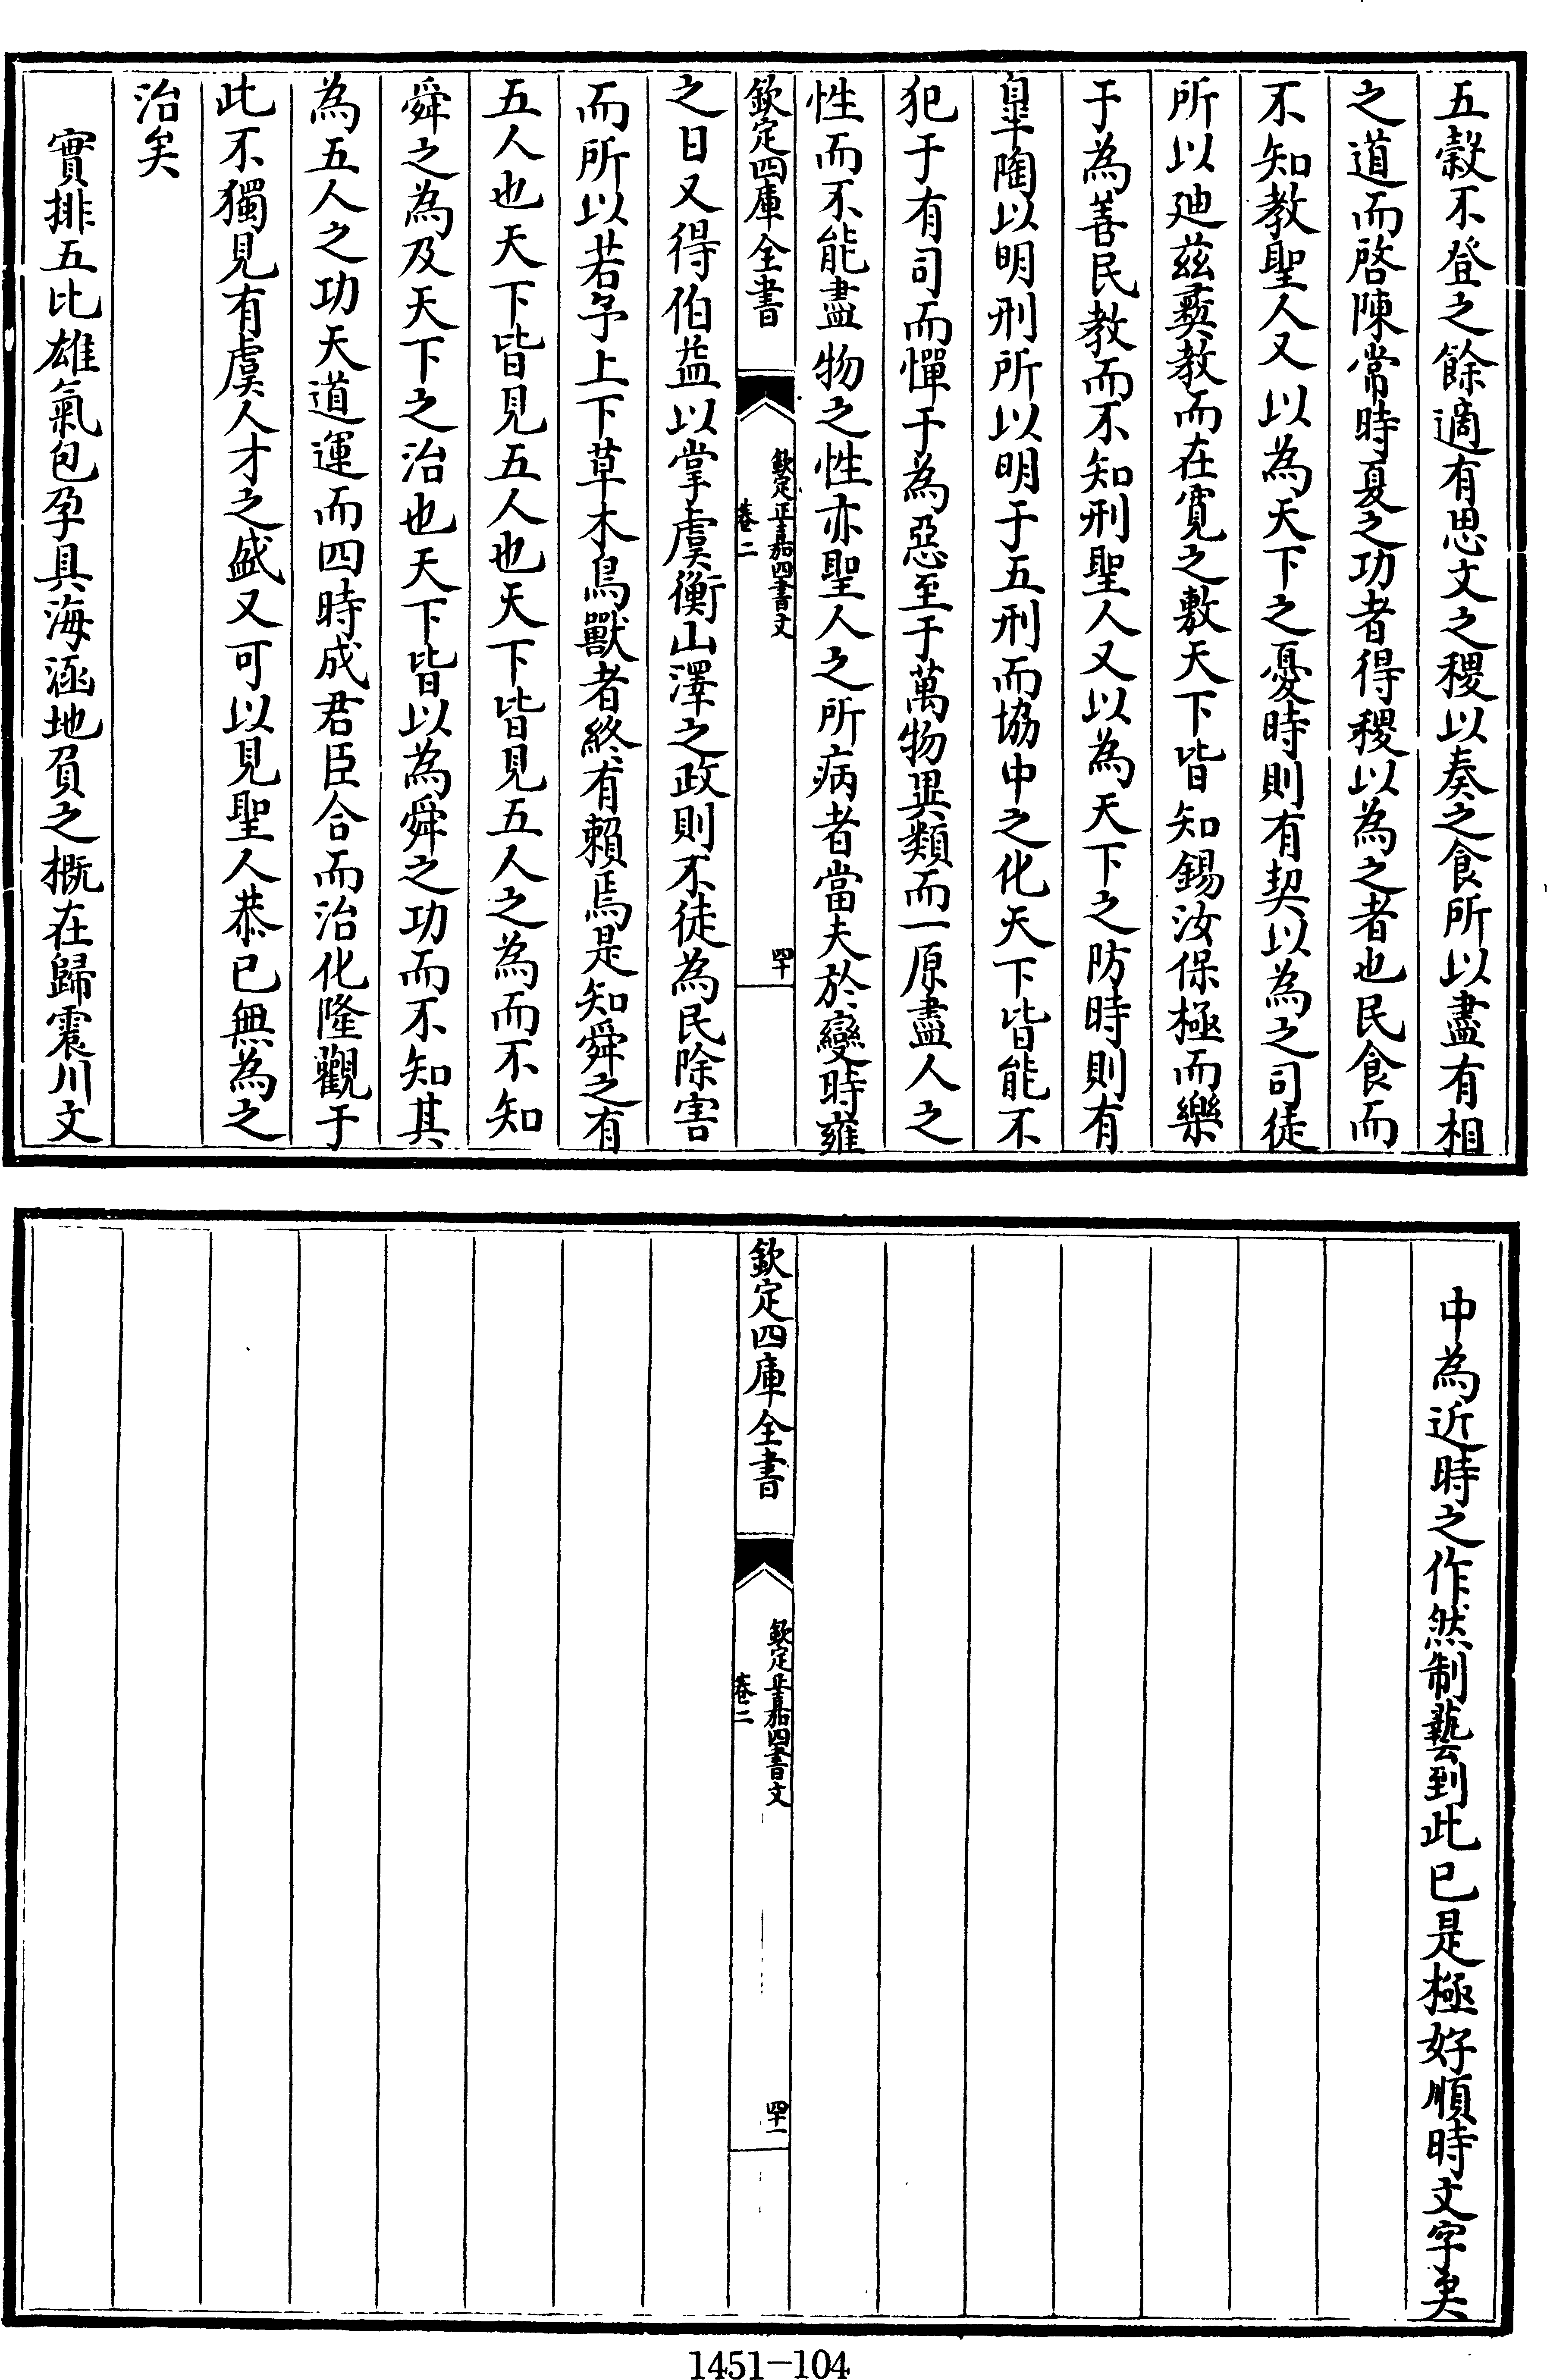 五穀不登之餘適有思文之稷以奏之食所以盡有相
之道而啓陳常時夏之功者得稷以為之者也民食而
不知教聖人又以為天下之憂時則有契以為之司徒
所以廸茲彞教而在寛之敷天下皆知錫汝保極而樂
于為善民教而不知刑聖人又以為天下之防時則有
臯陶以明刑所以明于五刑而協中之化天下皆能不
犯于有司而憚于為惡至于萬物異類而一原盡人之
性而不能盡物之性亦聖人之所病者當夫於變時雍
欽定四庫全書
欽定正嘉四書文
卷二
四十
之日又得伯益以掌虞衡山澤之政則不徒為民除害
而所以若予上下草木鳥獸者終有賴焉是知舜之有
五人也天下皆見五人也天下皆見五人之為而不知
舜之為及天下之治也天下皆以為舜之功而不知其
為五人之功天道運而四時成君臣合而治化隆觀于
此不獨見有虞人才之盛又可以見聖人恭已無為之
治矣
實排五比雄氣包孕具海涵地負之概在歸震川文
中為近時之作然制藝到此已是極好順時文字矣
欽定四庫全書
欽定正嘉四書文
卷二
四十一
1451-104